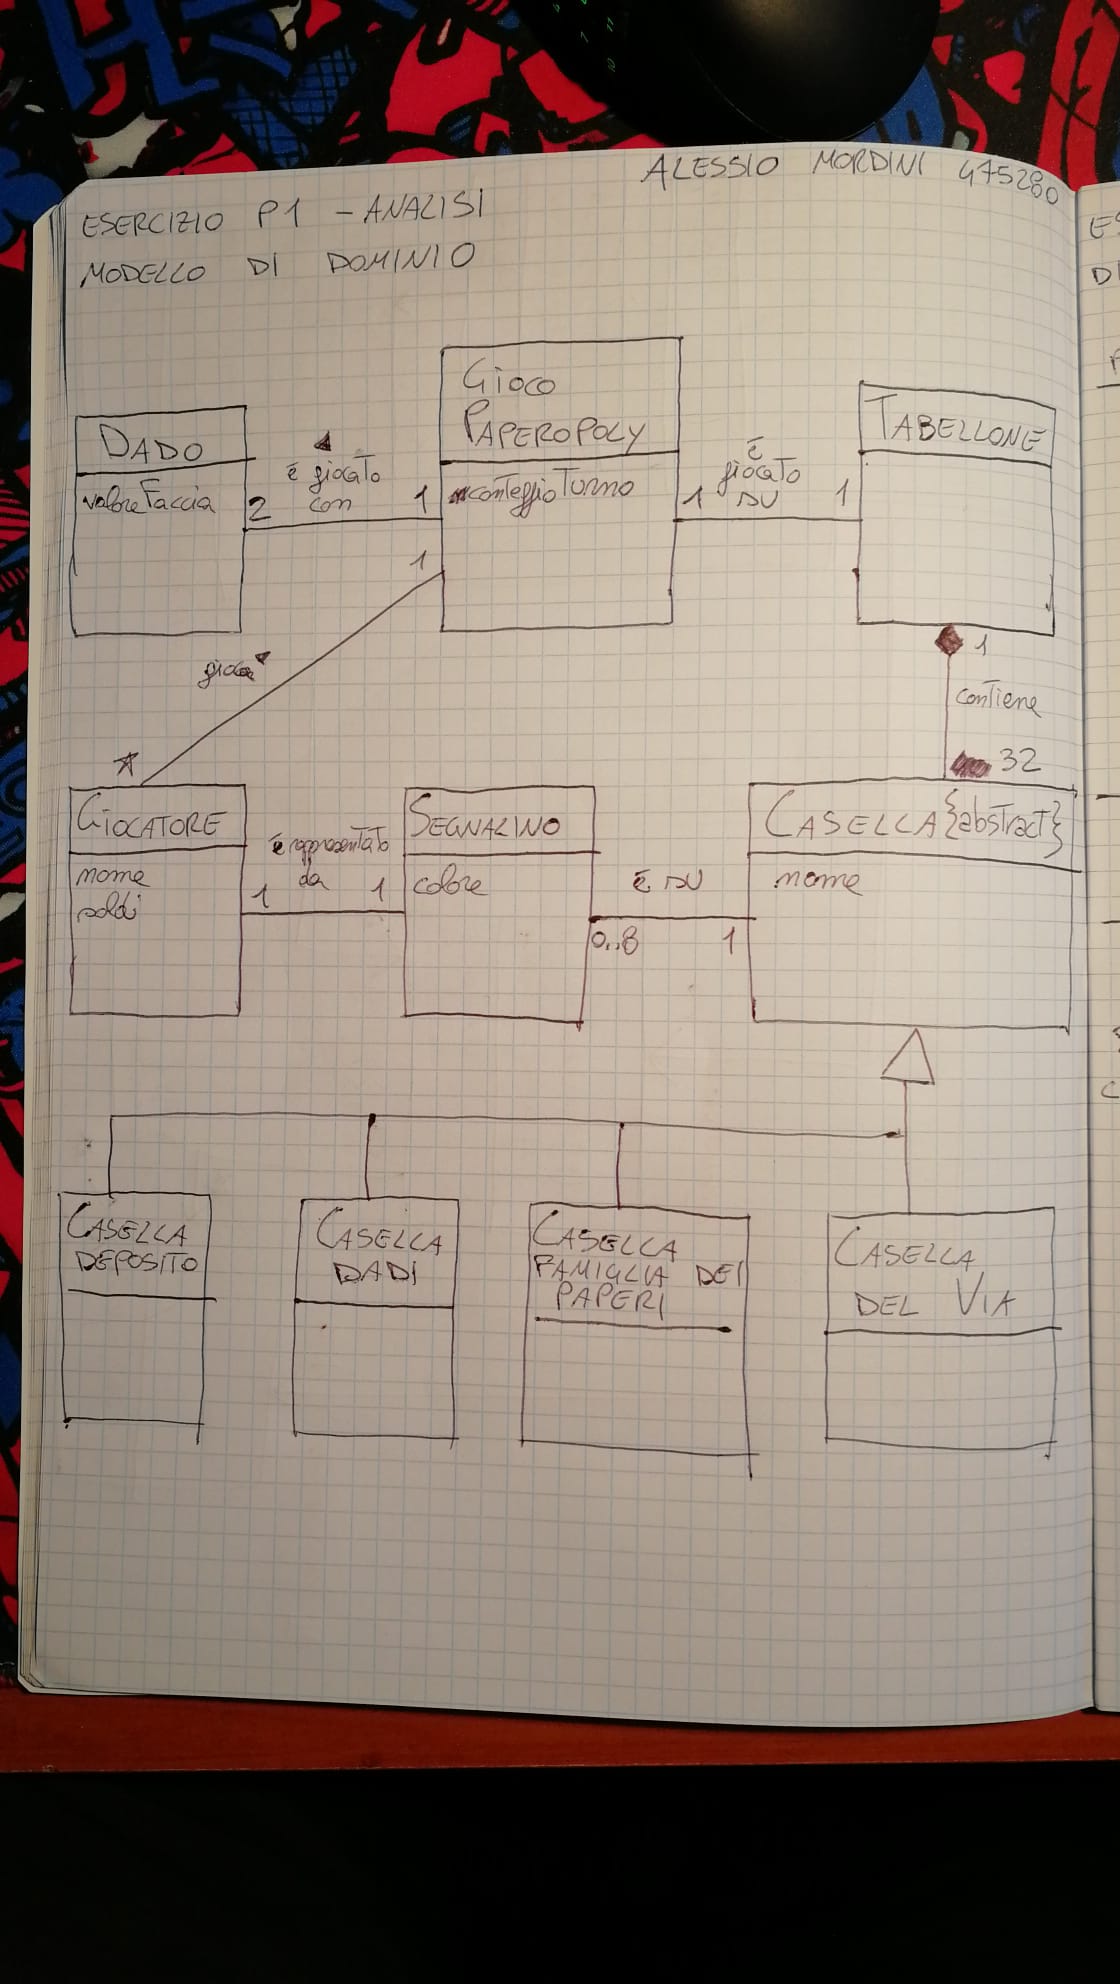 ALESSIO MORDINI 475280
ESERCIZIO P1 - ANALISI
MODELLO DI DOMINIO
DADO
valoreFaccia
2
è giocato
con
1
GIOCO
PAPEROPOLY
conteggioTurno
1
è
giocato
su
1
TABELLONE
1
gioca
*
1
contiene
32
GIOCATORE
nome
soldi
1
è rappresentato
da
1
SEGNALINO
colore
È SU
0..8
1
CASELLA {abstract}
nome
CASELLA
DEPOSITO
CASELLA
DADI
CASELLA
FAMIGLIA DEI
PAPERI
CASELLA
DEL VIA
ES
DI